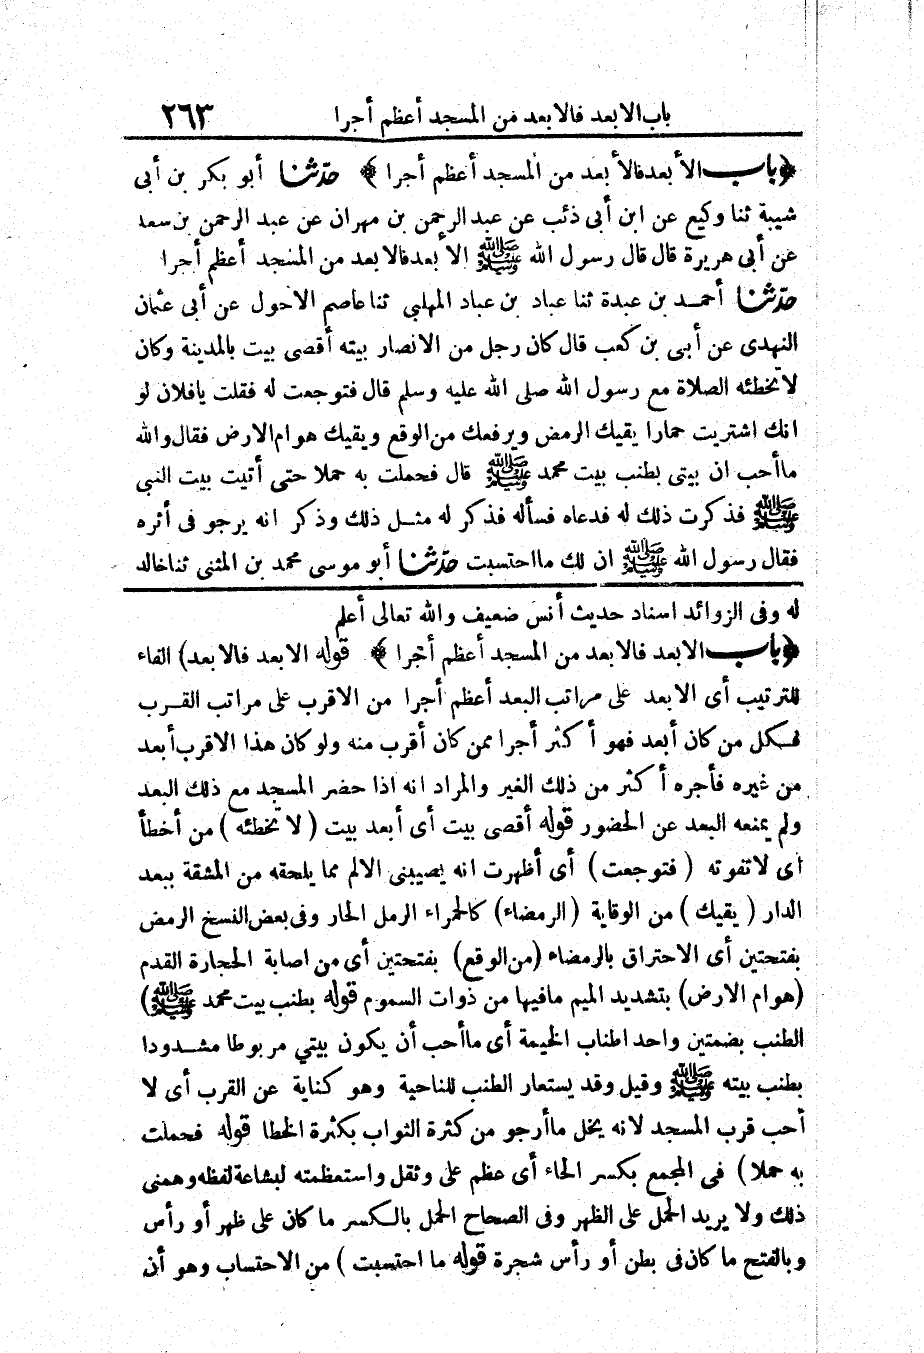 باب الابعد فالابعد من المسجد أعظم أجرا ٢٦٣
﴿باب الأبعد فالأبعد من المسجد أعظم أجرا﴾ حدّثنا أبو بكر بن أبى
شيبة ثنا وكيع عن ابن أبى ذئب عن عبد الرحمن بن مهران عن عبد الرحمن بن سعد
عن أبى هريرة قال قال رسول الله ﷺ الأبعد فالابعد من المسجد أعظم أجرا
حدّثنا أحمد بن عبدة ثنا عباد بن عباد المهلبي ثنا عاصم الاحول عن أبى عثمان
النهدى عن أبى بن كعب قال كان رجل من الانصار بيته أقصى بيت بالمدينة وكان
لا تخطئه الصلاة مع رسول الله صلى الله عليه وسلم قال فتوجعت له فقلت يافلان لو
انك اشتريت حمارا يقيك الرمض ويرفعك من الوقع ويقيك هوام الارض فقال والله
ماأحب ان بيتى بطنب بيت محمد ﷺ قال فحملت به حملا حتى أتيت بيت النبى
ﷺ فذكرت ذلك له فدعاه فسأله فذكر له مثل ذلك وذكر انه يرجو فى أثره
فقال رسول الله ﷺ ان لك مااحتسبت حدّثنا أبو موسى محمد بن المثنى ثنا خالد
له وفى الزوائد اسناد حديث أنس ضعيف والله تعالى أعلم
﴿باب الابعد فالابعد من المسجد أعظم أجرا﴾ قوله الابعد فالابعد) الفاء
للترتيب أى الابعد على مراتب البعد أعظم أجرا من الاقرب على مراتب القرب
فكل من كان أبعد فهو أكثر أجرا ممن كان أقرب منه ولو كان هذا الاقرب أبعد
من غيره فأجره أكثر من ذلك الغير والمراد انه اذا حضر المسجد مع ذلك البعد
ولم يمنعه البعد عن الحضور قوله أقصى بيت أى أبعد بيت (لا تخطئه) من أخطأ
أى لاتفوته (فتوجعت) أى أظهرت انه يصيبنى الالم مما يلحقه من المشقة ببعد
الدار (يقيك) من الوقاية (الرمضاء) كالحمراء الرمل الحار وفى بعض النسخ الرمض
بفتحتين أى الاحتراق بالرمضاء (من الوقع) بفتحتين أى من اصابة الحجارة القدم
(هوام الارض) بتشديد الميم مافيها من ذوات السموم قوله بطنب بيت محمد ﷺ)
الطنب بضمتين واحد اطناب الخيمة أى ماأحب أن يكون بيتي مربوطا مشدودا
بطنب بيته ﷺ وقيل وقد يستعار الطنب للناحية وهو كناية عن القرب أى لا
أحب قرب المسجد لانه يخل ماأرجو من كثرة الثواب بكثرة الخطا قوله فحملت
به حملا) فى المجمع بكسر الحاء أى عظم على وثقل واستعظمته لبشاعة لفظه وهمنى
ذلك ولا يريد الحمل على الظهر وفى الصحاح الحمل بالكسر ما كان على ظهر أو رأس
وبالفتح ما كان فى بطن أو رأس شجرة قوله ما احتسبت) من الاحتساب وهو أن